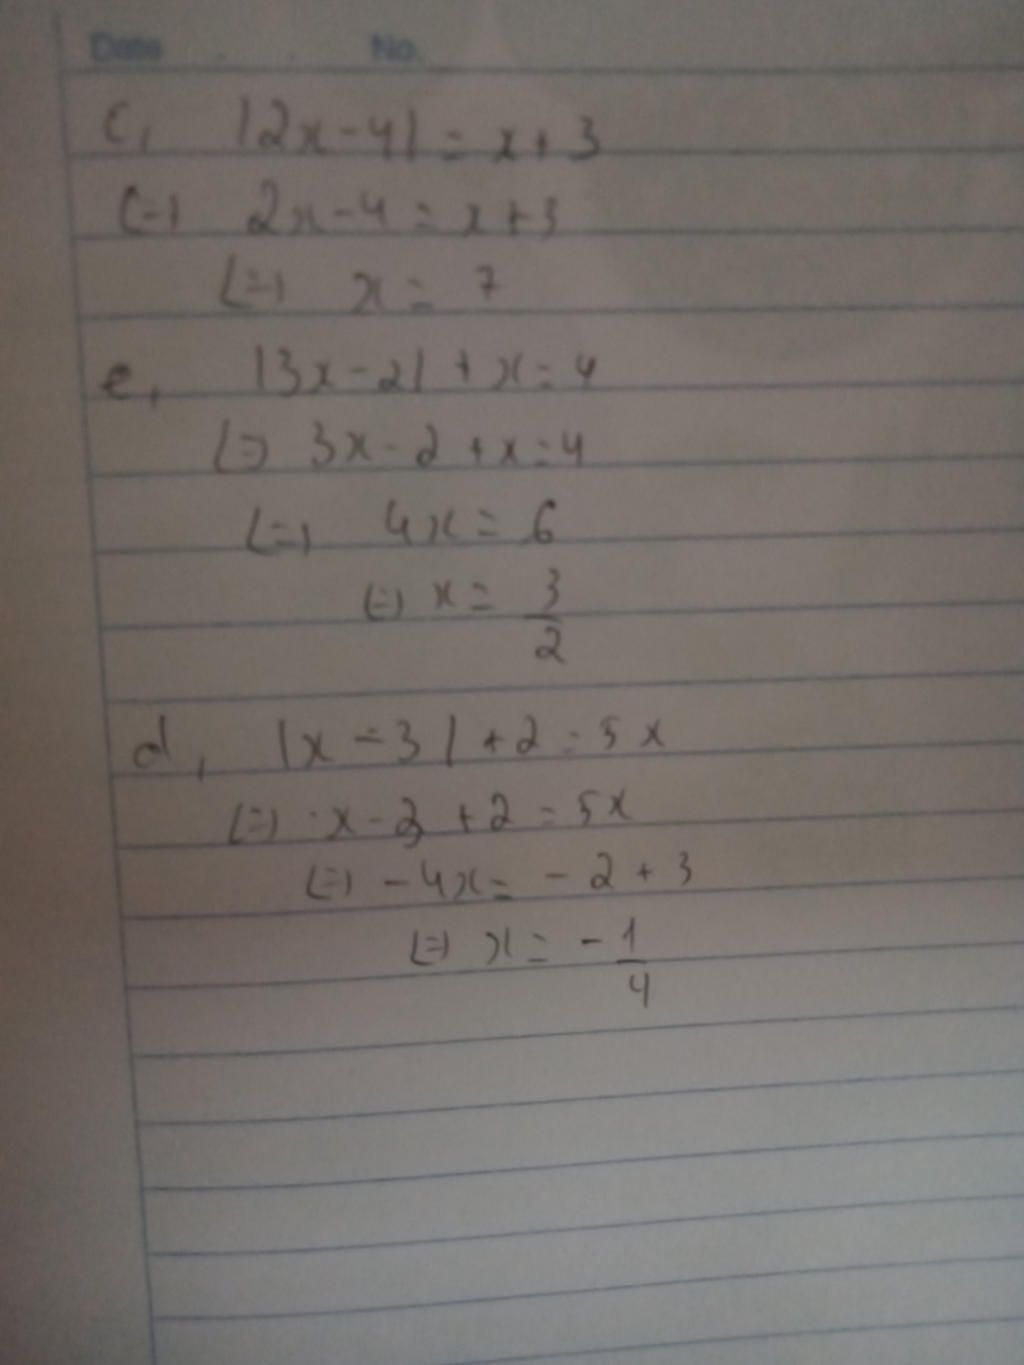 Date No.
c, |2x-4| = x+3
(=) 2x-4 = x+3
(=) x = 7
e, |3x-2| + x = 4
(=) 3x-2 + x = 4
(=) 4x = 6
(=) x = 3/2
d, |x-3| + 2 = 5x
(=) x-3 + 2 = 5x
(=) -4x = -2 + 3
(=) x = -1/4